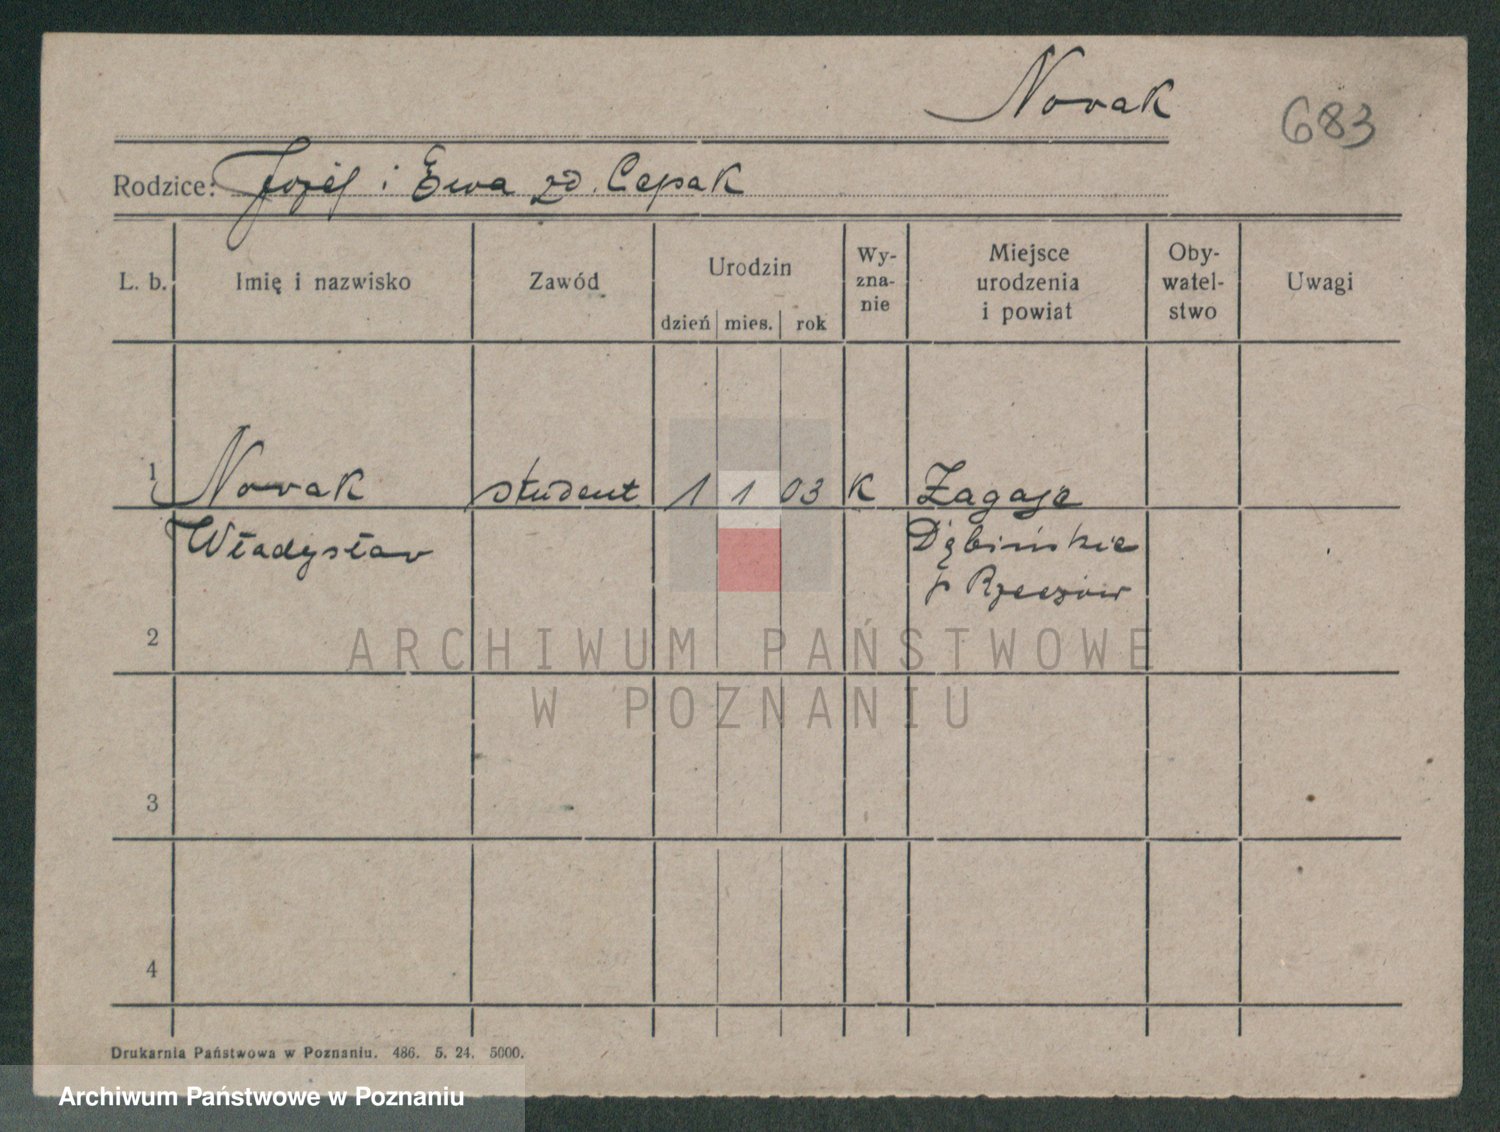 Novak
683
Rodzice: Józef i Ewa zd. Cepak
L. b.
Imię i nazwisko
Zawód
Urodzin
dzień mies. rok
Wy-
zna-
nie
Miejsce
urodzenia
i powiat
Oby-
watel-
stwo
Uwagi
1 Novak student 1 1 03 K Zagaje
Władysłav Dębińskie
p Rzeszów
2
ARCHIWUM PAŃSTWOWE
W POZNANIU
3
4
Drukarnia Państwowa w Poznaniu. 486. 5. 24. 5000.
Archiwum Państwowe w Poznaniu